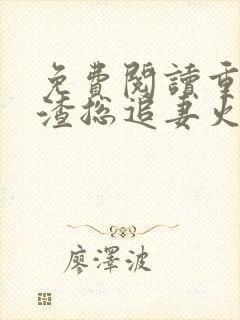 免費閱讀重
渣總追妻火
廖澤波